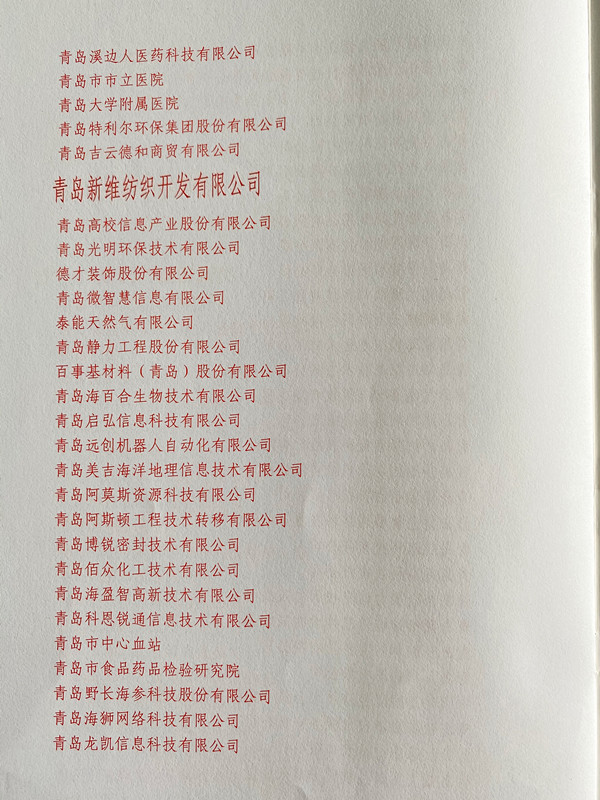 青岛溪边人医药科技有限公司
青岛市市立医院
青岛大学附属医院
青岛特利尔环保集团股份有限公司
青岛吉云德和商贸有限公司
青岛新维纺织开发有限公司
青岛高校信息产业股份有限公司
青岛光明环保技术有限公司
德才装饰股份有限公司
青岛微智慧信息有限公司
泰能天然气有限公司
青岛静力工程股份有限公司
百事基材料（青岛）股份有限公司
青岛海百合生物技术有限公司
青岛启弘信息科技有限公司
青岛远创机器人自动化有限公司
青岛美吉海洋地理信息技术有限公司
青岛阿莫斯资源科技有限公司
青岛阿斯顿工程技术转移有限公司
青岛博锐密封技术有限公司
青岛佰众化工技术有限公司
青岛海盈智高新技术有限公司
青岛科恩锐通信息技术有限公司
青岛市中心血站
青岛市食品药品检验研究院
青岛野长海参科技股份有限公司
青岛海狮网络科技有限公司
青岛龙凯信息科技有限公司